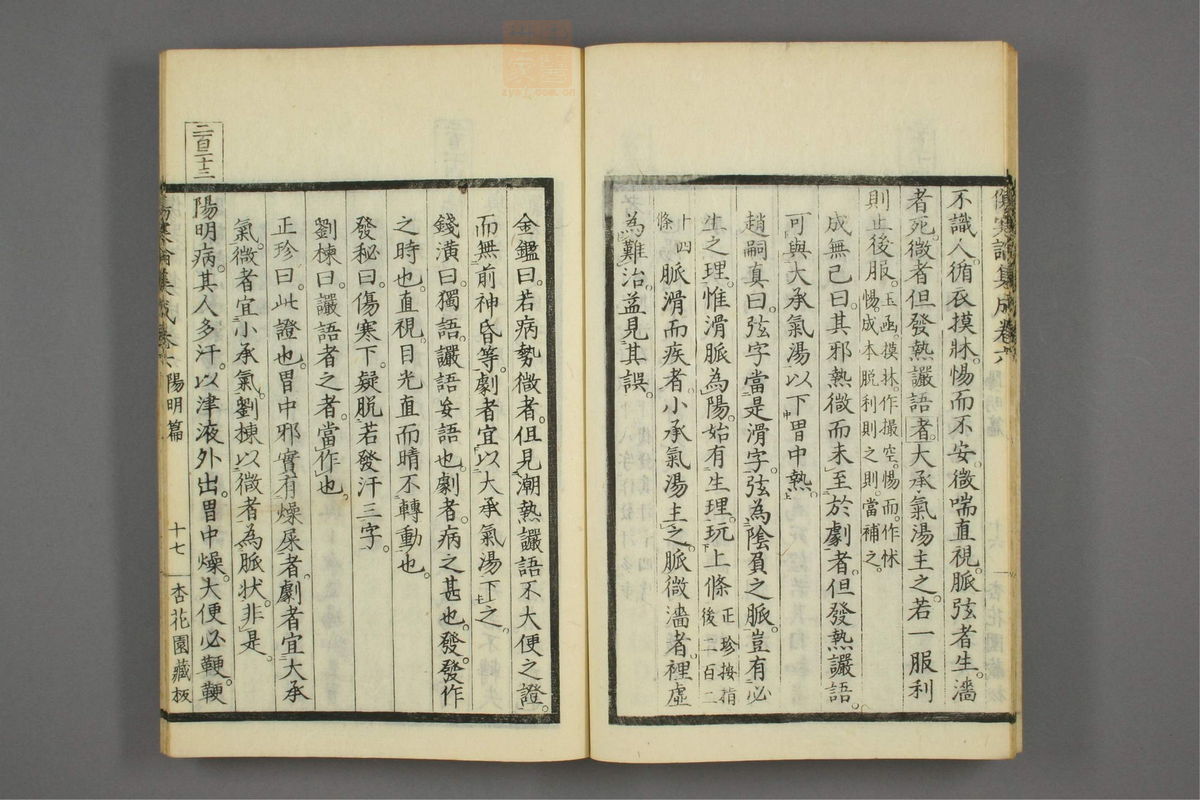 傷寒論集成卷六
不識人。循衣摸牀。惕而不安。微喘直視。脈弦者生。濇
者死。微者但發熱讝語者。大承氣湯主之。若一服利
則止後服。玉函。摸牀。作撮空。惕而。作怵
惕。成本脫利則之則。當補之。
成無己曰。其邪熱微而未至於劇者。但發熱讝語。
可與大承氣湯以下胃中熱。
趙嗣真曰。弦字當是滑字。弦為陰負之脈。豈有必
生之理。惟滑脈為陽。始有生理。玩上條正珍按指
後二百二
十四
條
脈滑而疾者。小承氣湯主之。脈微濇者。裡虛
為難治。益見其誤。
金鑑曰。若病勢微者。但見潮熱讝語不大便之證。
而無前神昏等。劇者宜以大承氣湯下之。
錢潢曰。獨語。讝語妄語也。劇者。病之甚也。發。發作
之時也。直視。目光直而睛不轉動也。
發秘曰。傷寒下。疑脫若發汗三字。
劉棟曰。讝語者之者。當作也。
正珍曰。此證也。胃中邪實有燥屎者。劇者宜大承
氣。微者宜小承氣。劉棟以微者為脈狀。非是。
二百二十三
陽明病。其人多汗。以津液外出。胃中燥。大便必鞕。鞕
陽明篇
十七
杏花園藏板